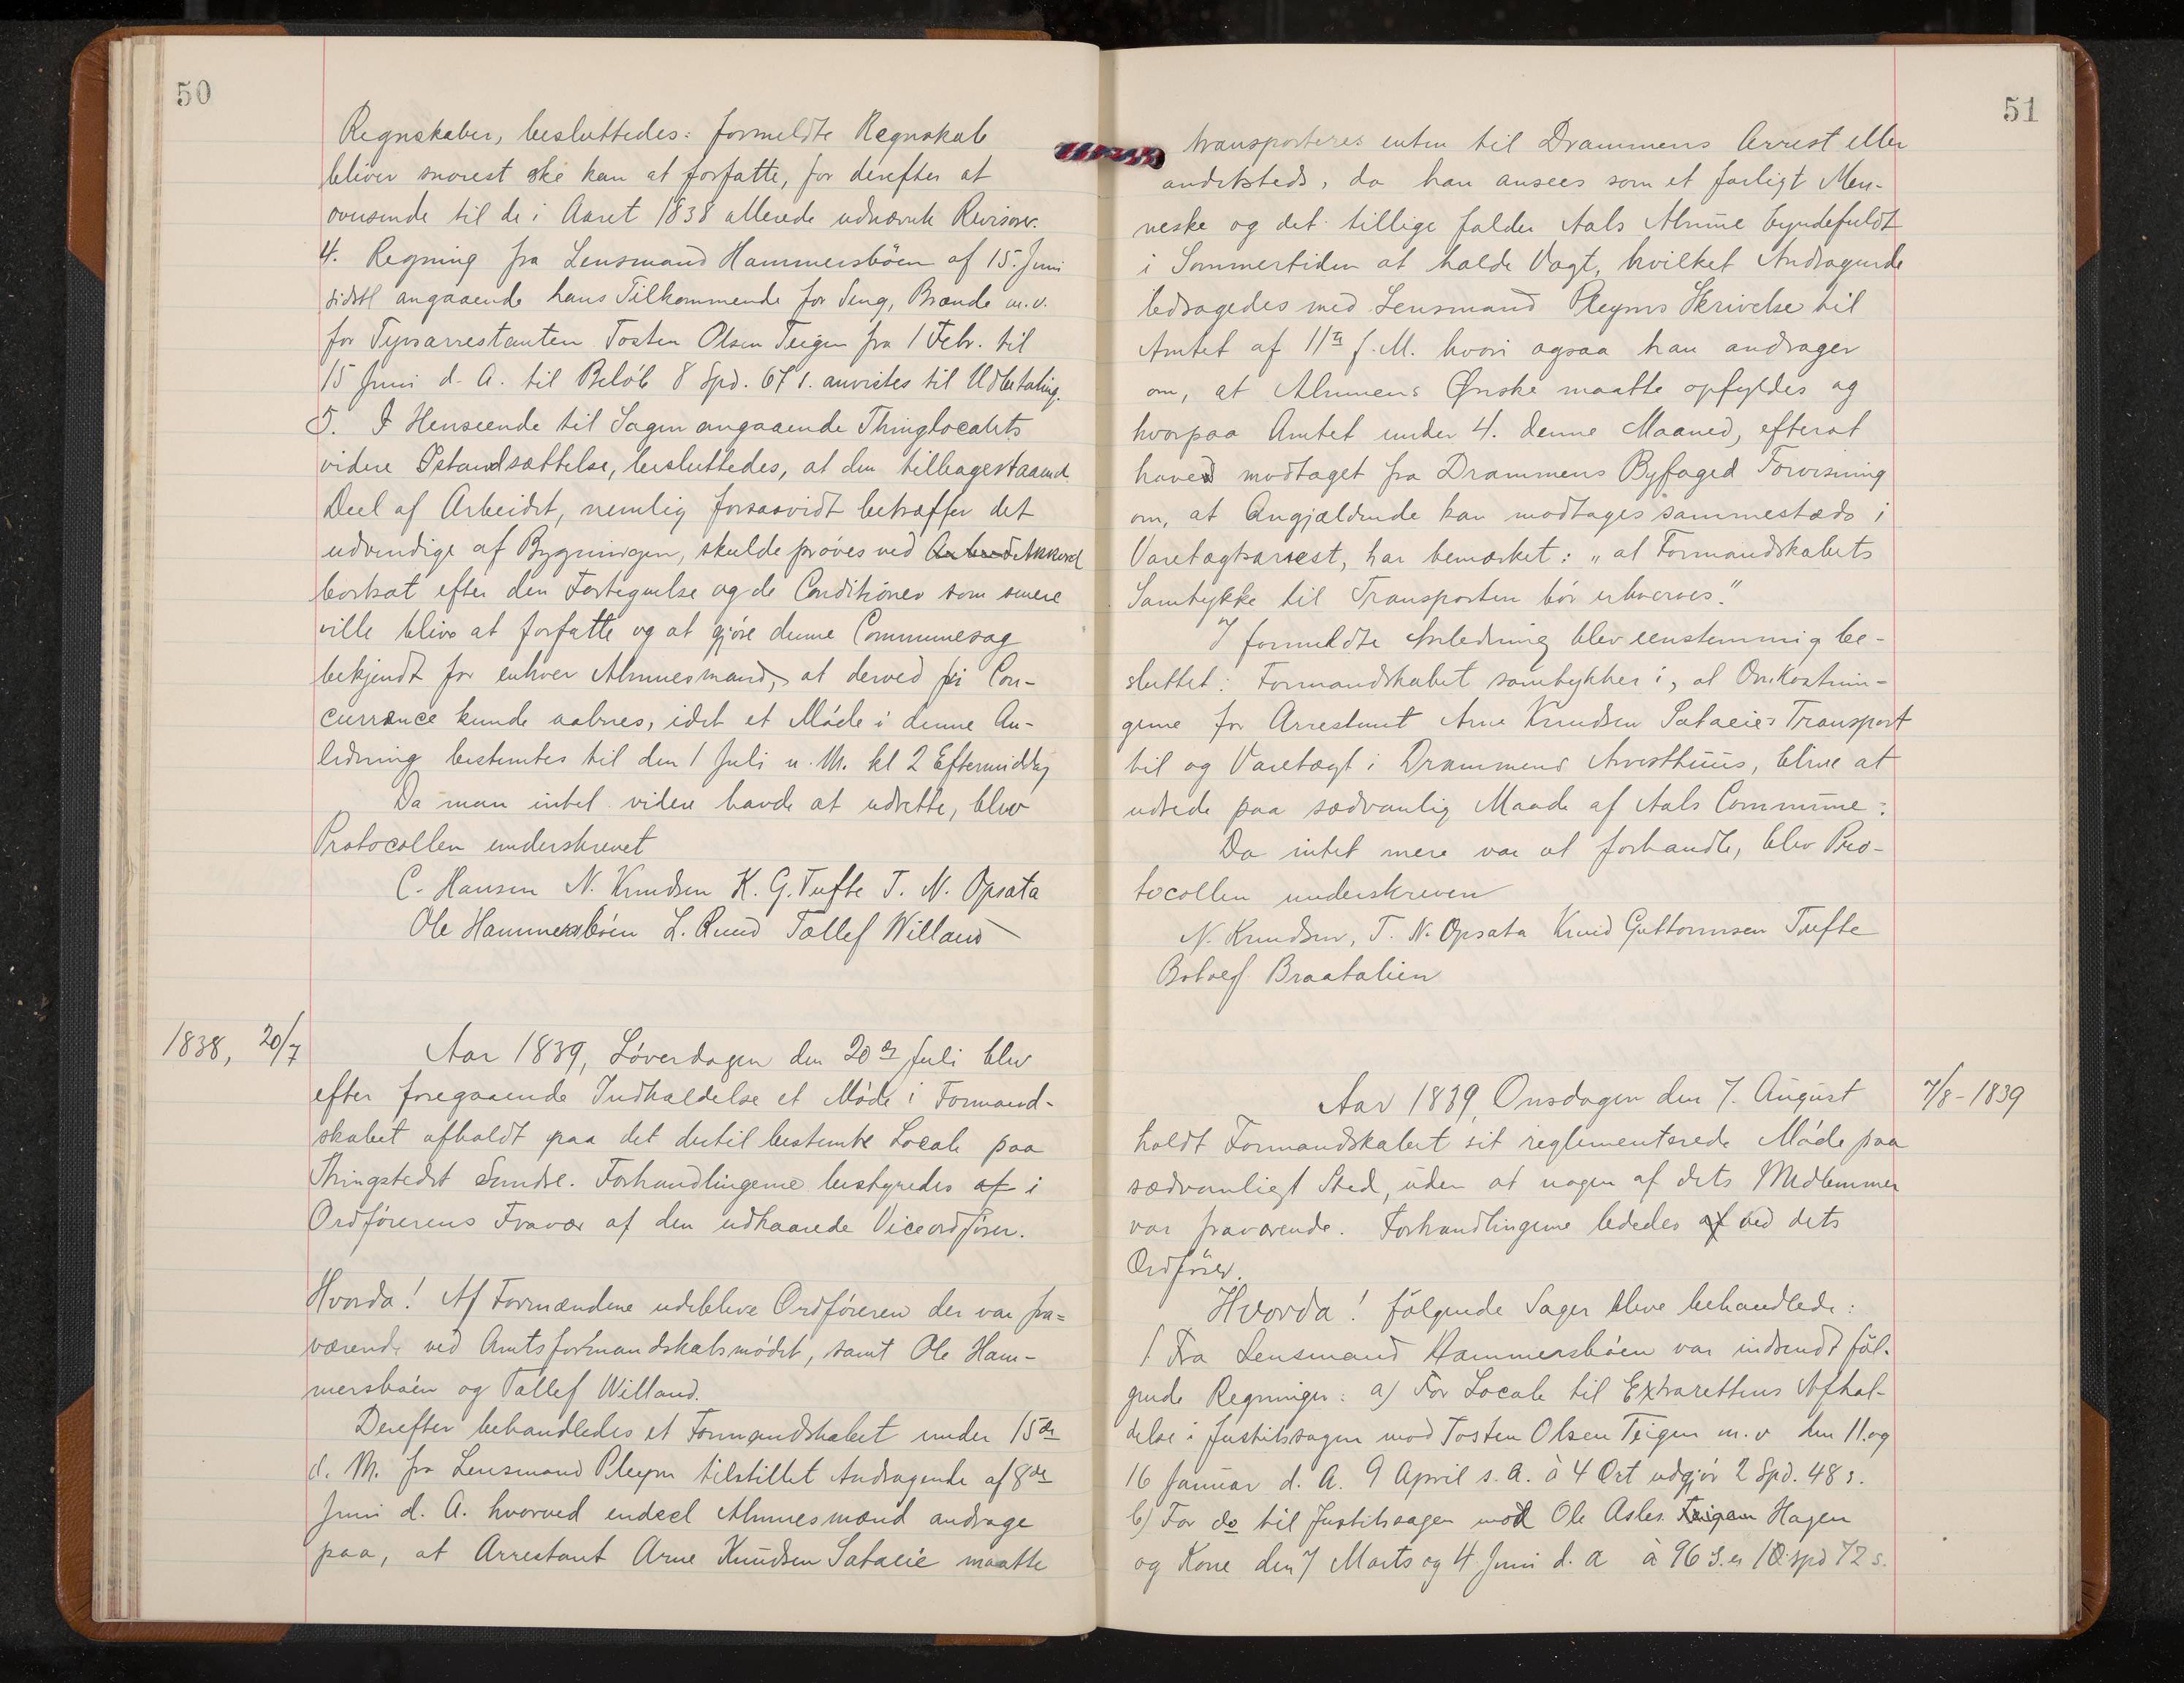 50
Regnskaber, besluttedes: formeldte Regnskab
bliver snarest ske kan at forfatte, for derefter at
oversende til de i Aaret 1838 allerede udnævnte Revisorer.
4. Regning fra Lensmand Hammersböen af 15. Juni
sidstl angaaende hans Tilkommende for Seng, Brænde m.v.
for Tyvsarrestanten Tosten Olsen Teigen fra 1 Febr. til
15 Juni d. A. til Belöb 8 Spd. 67 s. anvistes til Udbetaling.
5. I Henseende til Sagen angaaende Thinglocalets
videre Istandsættelse, besluttedes, at den tilbagestaaend.
Deel af Arbeidet, nemlig forsaavidt betræffer det
udvendige af Bygningen, skulde pröves ved Akkord
bortsat efter den Fortegnelse og de Conditioner som senere
ville blive at forfatte og at gjöre denne Communesag
bekjendt for enhver Almuesmand, at derved fri Con-
currence kunde aabnes, idet et Möde i denne An-
ledning bestemtes til den 1 Juli n. M. kl 2 Eftermiddag
Da man intet videre havde at udrette, blev
Protocollen underskrevet
C. Hansen N. Knudsen K. G. Tufte T. N. Opsata
Ole Hammersböen L. Ruud Tollef Willand
1838, 20/7
Aar 1839, Löverdagen den 20de Juli blev
efter foregaaende Indkaldelse et Möde i Formand-
skabet afholdt paa det dertil bestemte Locale paa
Thingstedet Sundre. Forhandlingerne bestyredes af i
Ordförerens Fravær af den udkaarede Viceordförer.
Hvorda! Af Formændene udebleve Ordföreren der var fra=
værende ved Amtsformandskabsmödet, samt Ole Ham-
mersböen og Tollef Willand.
Derefter behandledes et Formandskabet under 15de
d. M. fra Lensmand Pleym tilstillet Andragende af 8de
Juni d. A. hvorved endeel Almuesmænd andrage
paa, at Arrestant Arne Knudsen Sataeie maatte
51
transporteres enten til Drammens Arrest eller
andetsteds, da han ansees som et farligt Men-
neske og det tillige falder Aals Almue byrdefuldt
i Sommertiden at holde Vagt, hvilket Andragende
ledsagedes med Lensmand Pleyms Skrivelse til
Amtet af 11te f. M. hvori ogsaa han andrager
om, at Almuens Ønske maatte opfyldes og
hvorpaa Amtet under 4. denne Maaned, efterat
haved modtaget fra Drammens Byfoged Forvisning
om, at Angjældende kan modtages sammesteds i
Varetægtsarrest, har bemærket: „at Formandskabets
Samtykke til Transporten bör erhverves."
I formeldte Anledning blev eenstemmig be-
sluttet: Formandskabet samtykker i, at Omkostnin-
gerne for Arrestant Arne Knudsen Sataeies Transport
til og Varetægt i Drammens Arresthuus, blive at
udrede paa sædvanlig Maade af Aals Commune:
Da intet mere var at forhandle, blev Pro-
tocollen underskreven
N. Knudsen, T. N. Opsata Knud Guttormsen Tufte
Botolf Braatalien
7/8 - 1839
Aar 1839, Onsdagen den 7. August
holdt Formandskabet sit reglementerede Möde paa
sædvanligt Sted, uden at nogen af dets Medlemmer
var fraværende. Forhandlingerne lededes af ved dets
Ordförer.
Hvorda! fölgende Sager bleve behandlede:
1 Fra Lensmand Hammersböen var indsendt föl-
gende Regninger: a) For Locale til Extrarettens Afhol-
delse i Justitssagen mod Tosten Olsen Teigen m. v den 11. og
16 Januar d. A. 9 April s. A. à 4 Ort udgjör 2 Spd. 48 s.
b) For do til Justitssagen mod Ole Asles. Teigen Hagen
og Kone den 7 Marts og 4 Juni d. A à 96 s. er 1 spd 72 s.